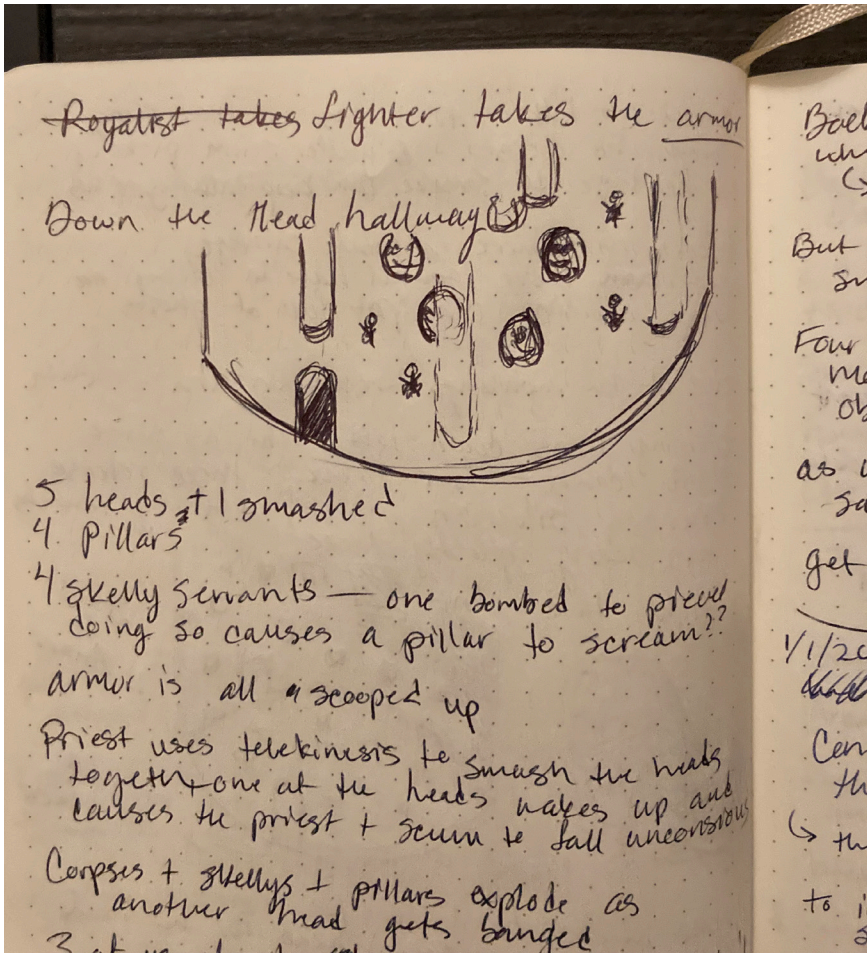 ~~Royalist takes~~ fighter takes the armor
Down the Head hallway
5 heads + 1 smashed
4 Pillars
4 skelly servants — one bombed to pieces
doing so causes a pillar to scream??
armor is all scooped up
Priest uses telekinesis to smash the heads
together + one of the heads wakes up and
causes the priest + scum to fall unconsious
Corpses + skellys + pillars explode as
another head gets banged
3
Four
But
as
get
1/1/20
to